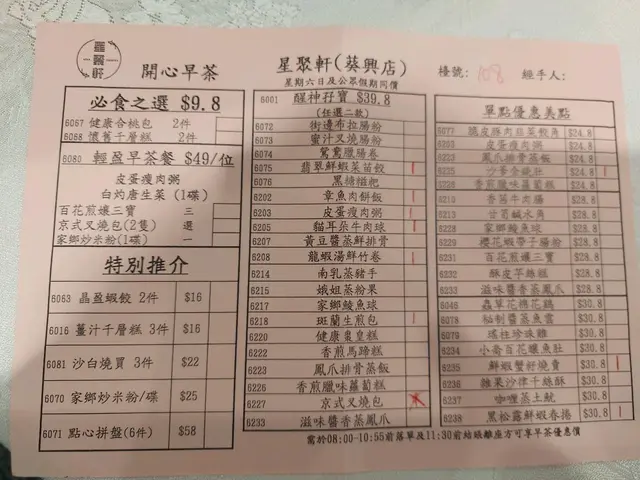 開心早茶
星聚軒(葵興店)
星期六日及公眾假期同價
檯號: 108 經手人:
必食之選 $9.8
6067 健康合桃包 2件
6068 懷舊千層糕 2件
6080 輕盈早茶餐 $49/位
皮蛋瘦肉粥
白灼唐生菜 (1碟)
百花煎釀三寶 三
京式叉燒包(2隻) 選
家鄉炒米粉(1碟) 一
特別推介
6063 晶盈蝦餃 2件 $16
6016 薑汁千層糕 3件 $16
6081 沙白燒買 3件 $22
6070 家鄉炒米粉/碟 $25
6071 點心拼盤(6件) $58
6001 醒神孖寶 $39.8
(任選二款)
6072 街邊布拉腸粉
6073 蜜汁叉燒腸粉
6074 鴛鴦臘腸卷
6075 翡翠鮮蝦菜苗餃
6076 黑糖糍粑
6202 章魚肉餅飯
6203 皮蛋瘦肉粥
6205 貓耳朵牛肉球
6207 黃豆醬蒸鮮排骨
6208 龍蝦湯鮮竹卷
6214 南乳蒸豬手
6215 娥姐蒸粉果
6217 家鄉鯪魚球
6218 斑蘭生煎包
6220 健康棗皇糕
6222 香煎馬蹄糕
6223 鳳爪排骨蒸飯
6226 香煎臘味蘿蔔糕
6227 京式叉燒包
6233 滋味醬香蒸鳳爪
單點優惠美點
6077 脆皮豚肉韮菜餃角 $24.8
6203 皮蛋瘦肉粥 $24.8
6223 鳳爪排骨蒸飯 $24.8
6225 $24.8
6226 香煎臘味蘿蔔糕 $24.8
6210 香茜牛肉腸 $28.8
6213 甘筍鹹水角 $28.8
6228 家鄉鯪魚球 $28.8
6229 櫻花蝦帶子腸粉 $28.8
6231 百花煎釀三寶 $28.8
6232 酥皮芋絲糕 $28.8
6233 滋味醬香蒸鳳爪 $28.8
6046 蟲草花棉花鷄 $30.8
6078 秘制醬蒸魚雲 $30.8
6079 瑤柱珍珠雞 $30.8
6234 小斋百花釀魚肚 $30.8
6235 鮮蝦蟹籽燒賣 $30.8
6236 雜果沙律千絲酥 $30.8
6237 咖喱蒸土魷 $30.8
6238 黑松露鮮蝦春捲 $30.8
需於08:00-10:55前落單及11:30前結賬離座方可享早茶優惠價